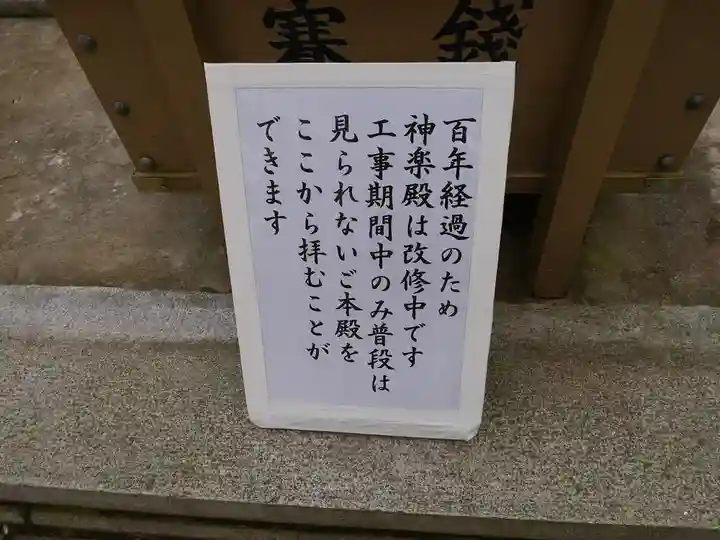 賽銭
百年経過のため
神楽殿は改修中です
工事期間中のみ普段は
見られないご本殿を
ここから拝むことが
できます